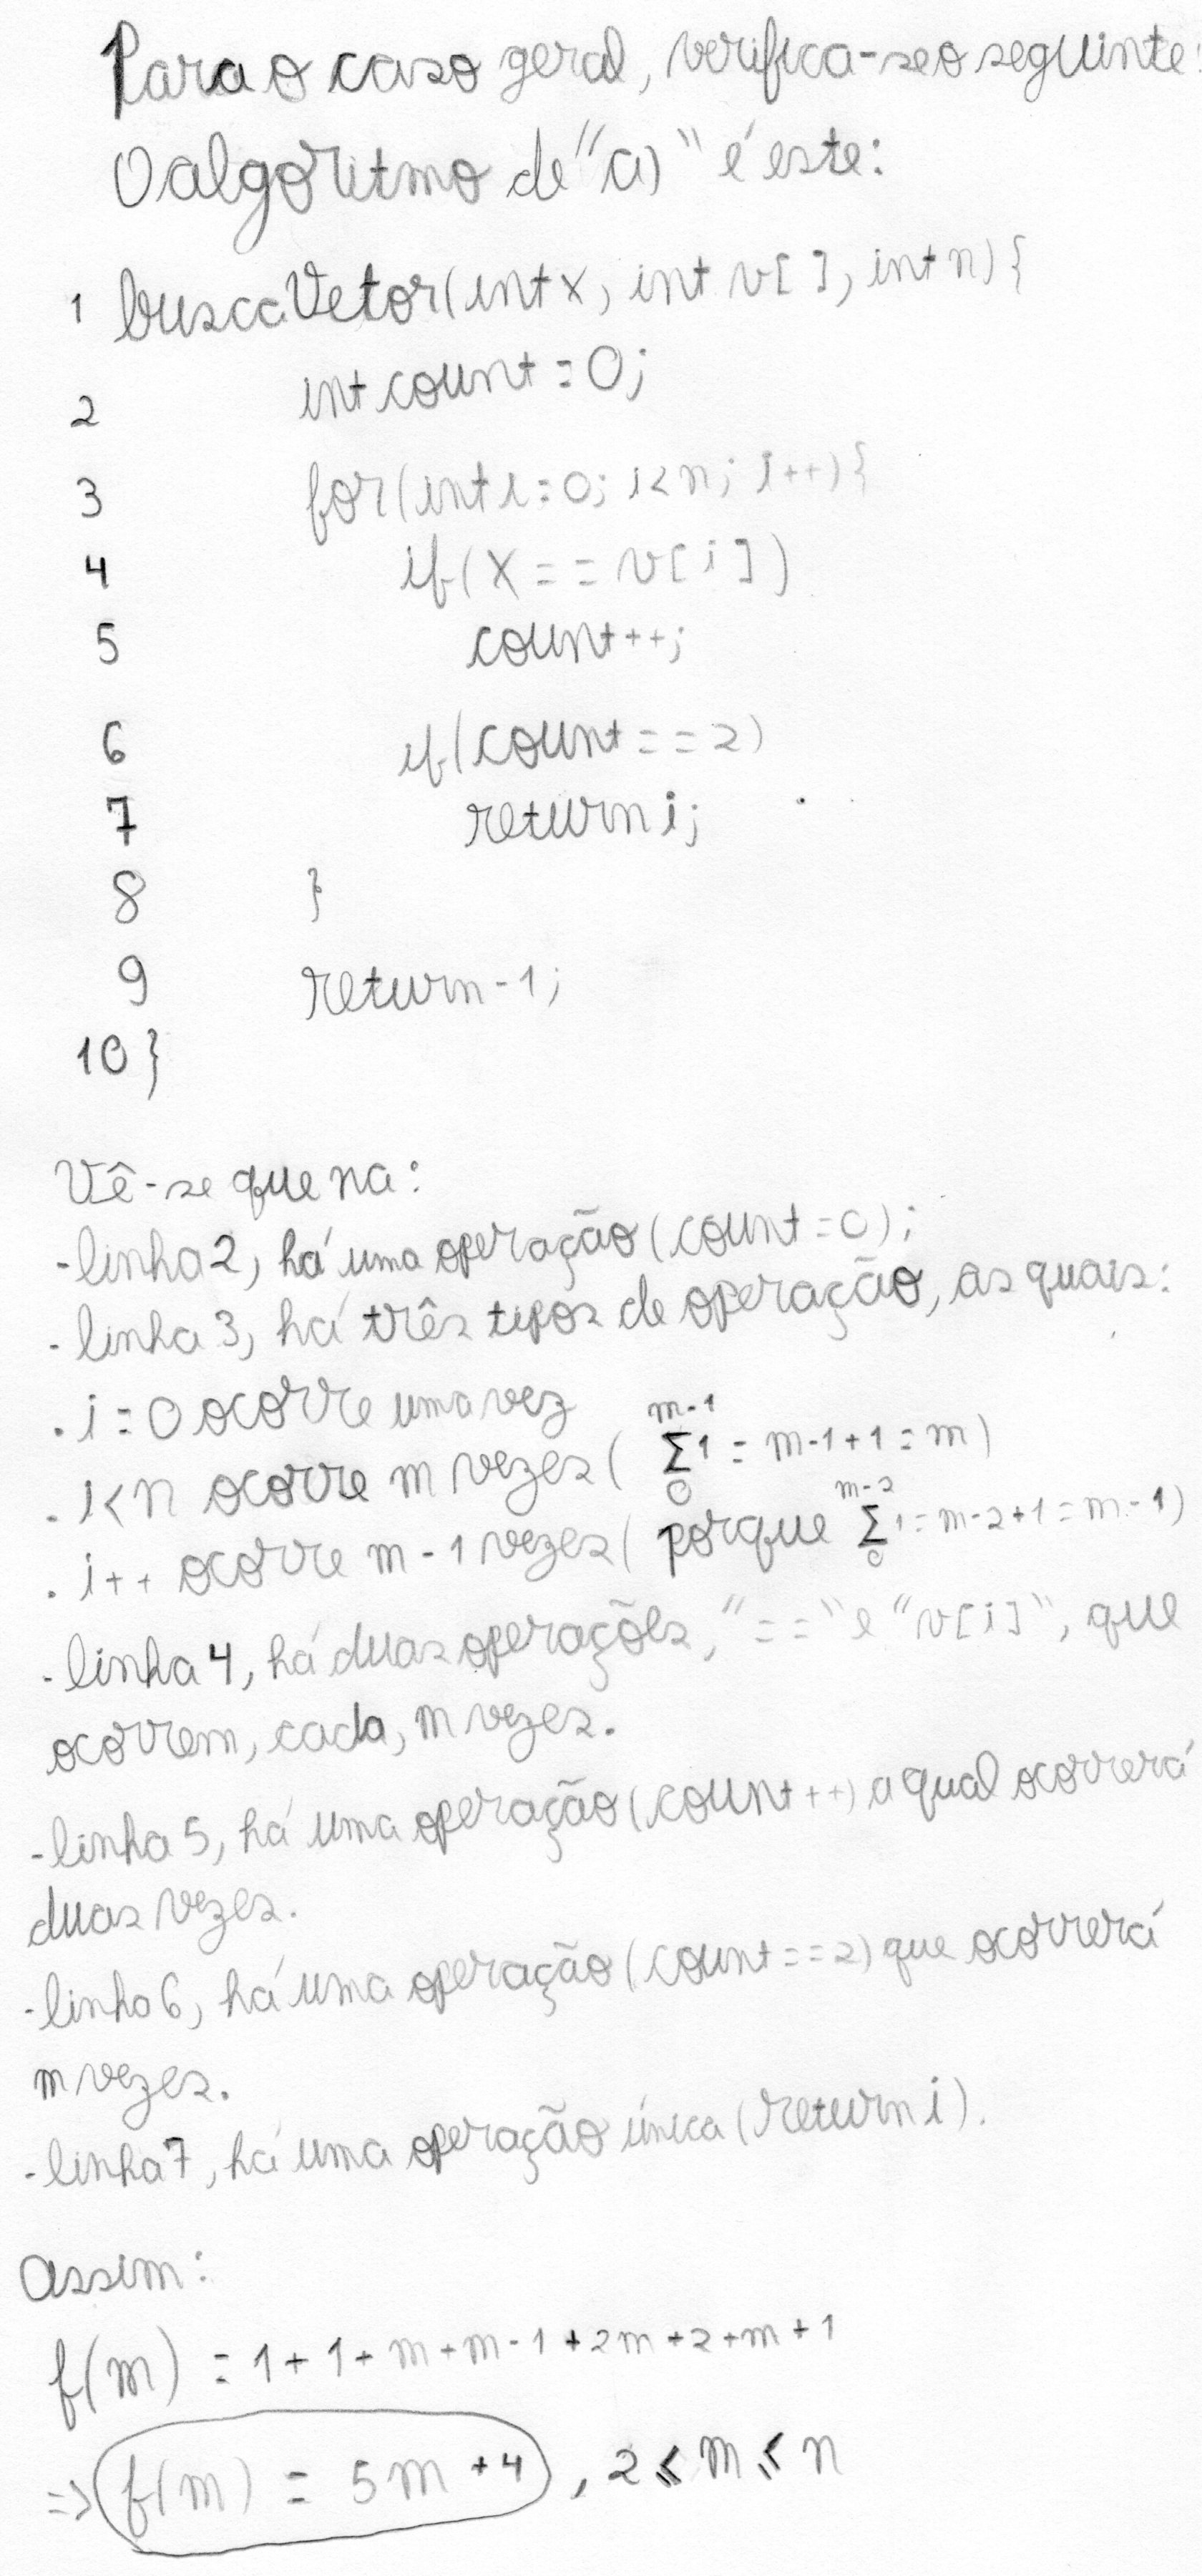 Para o caso geral, verifica-se o seguinte:
O algoritmo de "a)" é este:
1 buscaVetor(int x, int v[ ], int n){
2 int count = 0;
3 for(int i=0; i<n; i++){
4 if(x == v[i])
5 count++;
6 if(count == 2)
7 return i;
8 }
9 return -1;
10 }
Vê-se que na:
- linha 2, há uma operação (count = 0);
- linha 3, há três tipos de operação, as quais:
. i = 0 ocorre uma vez
. i < n ocorre m vezes ( \sum_{0}^{m-1} 1 = m-1+1 = m)
. i++ ocorre m-1 vezes ( porque \sum_{0}^{m-2} 1 = m-2+1 = m-1)
- linha 4, há duas operações, "==" e "v[i]", que
ocorrem, cada, m vezes.
- linha 5, há uma operação (count++) a qual ocorrerá
duas vezes.
- linha 6, há uma operação (count==2) que ocorrerá
m vezes.
- linha 7, há uma operação única (return i).
Assim:
f(m) = 1 + 1 + m + m - 1 + 2m + 2 + m + 1
=> f(m) = 5m + 4 , 2 ≤ m ≤ n